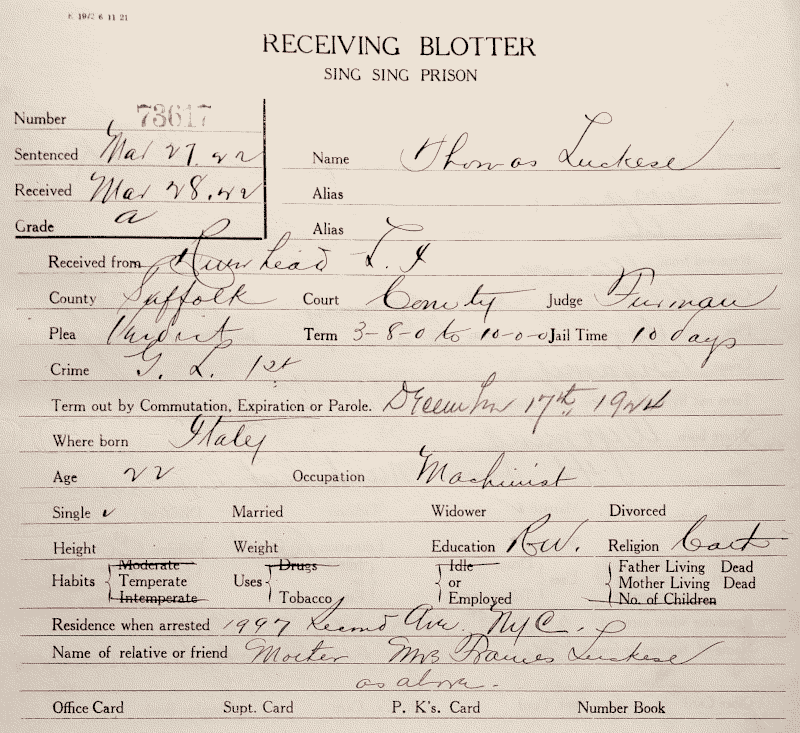 RECEIVING BLOTTER
SING SING PRISON
Number 73617
Sentenced Mar 27. 22
Received Mar 28. 22
Grade a
Name Thomas Luckese
Alias
Alias
Received from Riverhead L. I
County Suffolk Court County Judge Furman
Plea Verdict Term 3-8-0 to 10-0-0 Jail Time 10 days
Crime G. L. 1st
Term out by Commutation, Expiration or Parole. December 17th, 1924
Where born Italy
Age 22 Occupation Machinist
Single ✓ Married Widower Divorced
Height Weight Education R.W. Religion Cath
Habits Moderate Temperate Intemperate Uses Drugs Tobacco Idle or Employed Father Living Dead Mother Living Dead No. of Children
Residence when arrested 1997 Second Ave. NYC.
Name of relative or friend Mother Mrs Frances Luckese
as above.
Office Card Supt. Card P. K's. Card Number Book